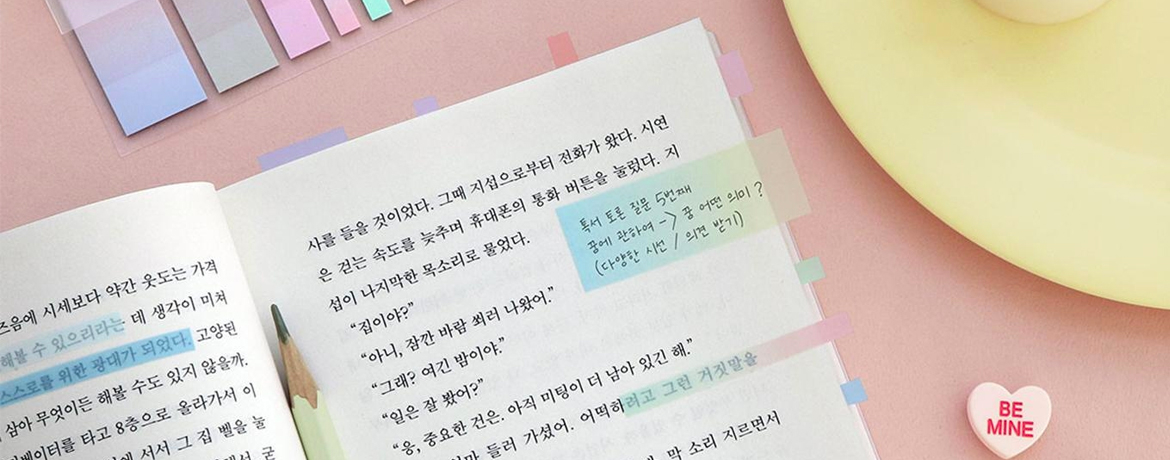 즈음에 시세보다 약간 웃도는 가격
해볼 수 있으리라는 데 생각이 미쳐
스스로를 위한 광대가 되었다. 고양된
삼아 무엇이든 해볼 수도 있지 않을까.
베이터를 타고 8층으로 올라가서 이
에 서서 그 집 벨을 눌
사를 들을 것이었다. 그때 지섭으로부터 전화가 왔다. 시연
은 걷는 속도를 늦추며 휴대폰의 통화 버튼을 눌렀다. 지
섭이 나지막한 목소리로 물었다.
“집이야?”
“아니, 잠깐 바람 쐬러 나왔어.”
“그래? 여긴 밤이야.”
“일은 잘 봤어?”
“응, 중요한 건. 아직 미팅이 더 남아 있긴 해.”
들러 가셨어. 어떡하려고 그런 거짓말을
막 소리 지르면서
독서 토론 질문 5번째
꿈에 관하여 -> 꿈 어떤 의미?
(다양한 시선 / 의견 받기)
BE
MINE